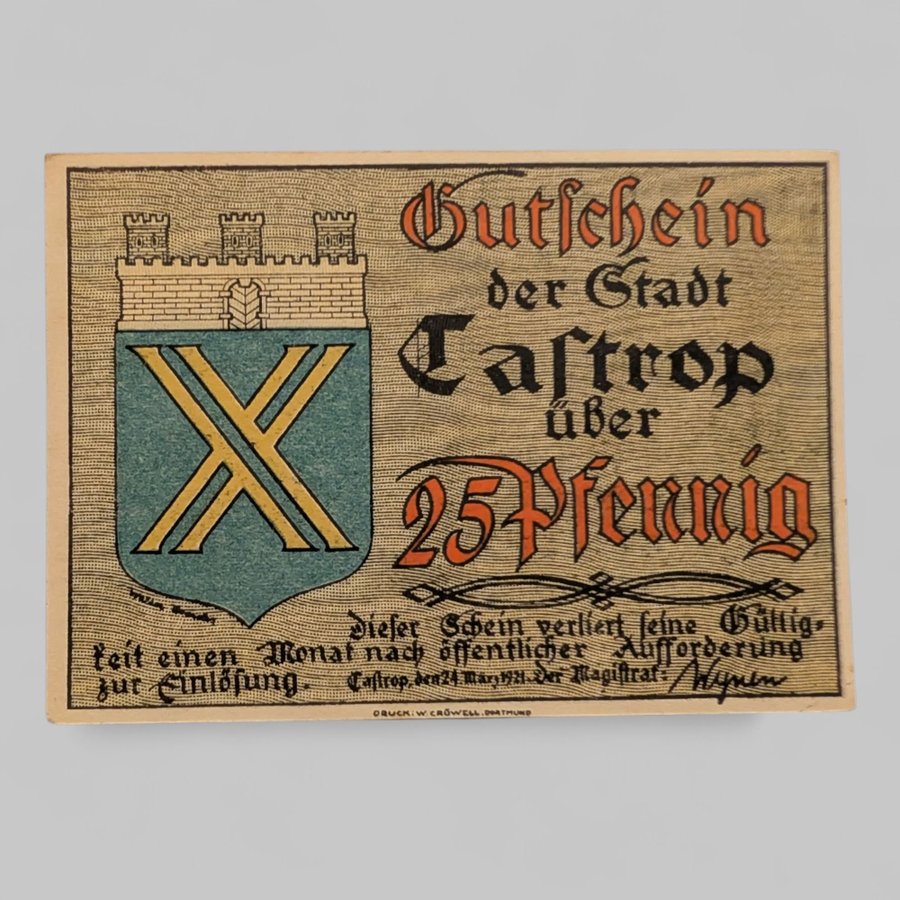 Gutschein
der Stadt
Castrop
über
25 Pfennig
Dieser Schein verliert seine Gültig-
keit einen Monat nach öffentlicher Aufforderung
zur Einlösung. Castrop, den 24. März 1921. Der Magistrat:
DRUCK: W. CRÜWELL. DORTMUND